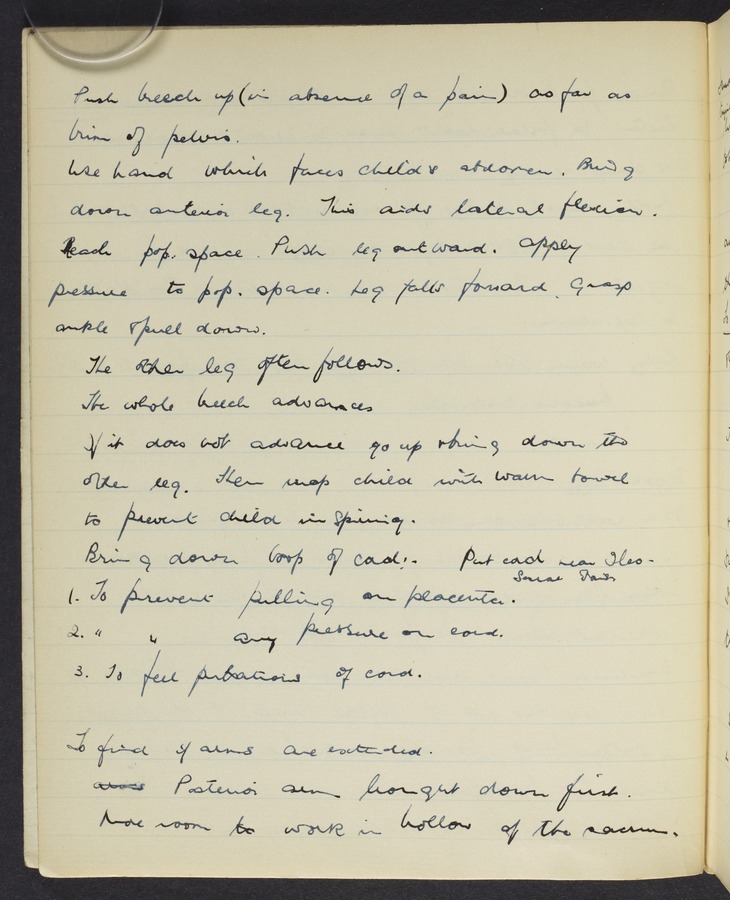 Push breech up (in absence of a pain) as far as
brim of pelvis.
Use hand which faces child's abdomen. Bring
down anterior leg. This aids lateral flexion.
Reach pop. space. Push leg outward. apply
pressure to pop. space. Leg falls forward. Grasp
ankle & pull down.
The other leg often follows.
The whole breech advances
If it does not advance go up & bring down the
other leg. Then wrap child with warm towel
to prevent child inspiring.
Bring down loop of cord:- Put cord near Ileo-
Sacral
1. To prevent pulling on placenta.
2. " " any pressure on cord.
3. To feel pulsations of cord.
To find if arms are extended.
arms Posterior arm brought down first.
More room to work in hollow of the sacrum.